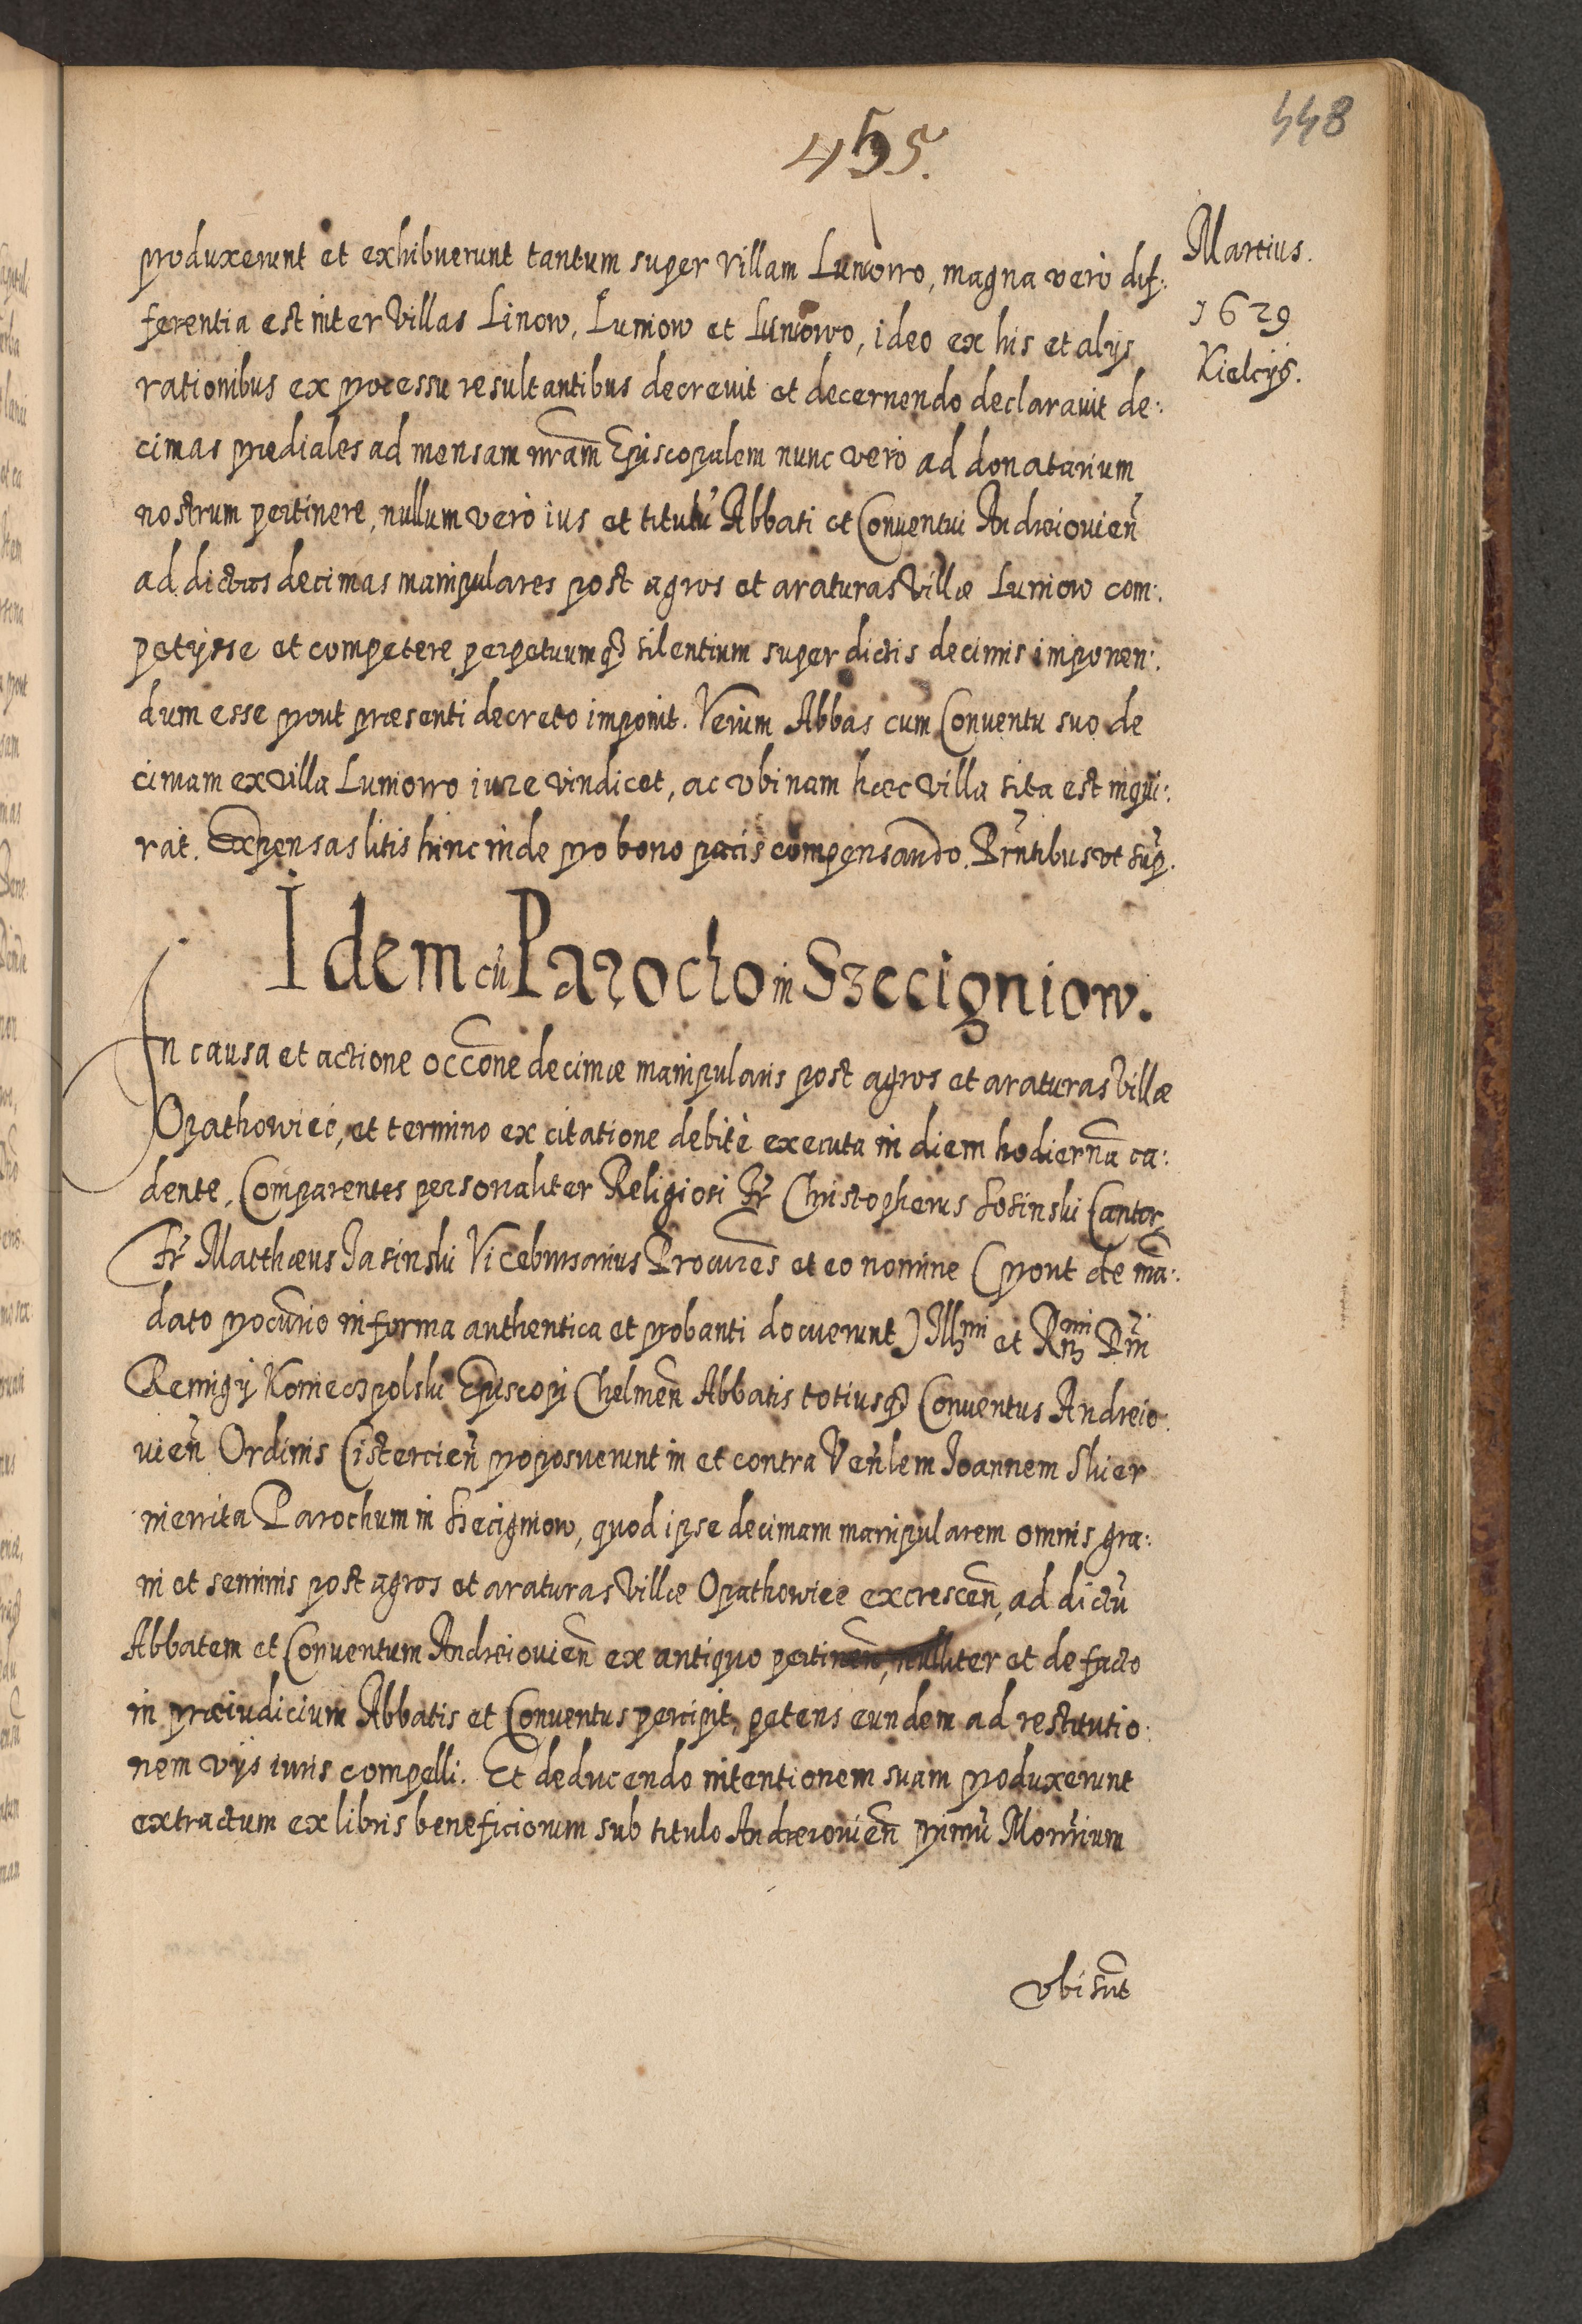 455.
448
Martius.
1629
Kielcijs.
produxerunt et exhibuerunt tantum super villam Luniowo, magna verò dif:
ferentia est inter villas Linow, Luniow et Luniowo, ideo ex his et alijs
rationibus ex processu resultantibus decrevit et decernendo declaravit de:
cimas prædiales ad mensam nr̃am Episcopalem nunc verò ad donatarium
nostrum pertinere, nullum verò ius et titulũ Abbati et Conventui Andreiovien̄
ad dictas decimas manipulares post agros et araturas villæ Luniow com:
petijsse et competere perpetuumq3 silentium super dictis decimis imponen:
dum esse prout præsenti decreto imponit. Verùm Abbas cum Conventu suo de
cimam ex villa Luniowo iure vindicet, ac ubinam hæc villa sita est inqui:
rat. Expensas litis hinc inde pro bono pacis compensando. Pr̃ntibus ut sup̃.
Idem cũ Parocho in Szczcigniow.
In causa et actione occ̃one decimæ manipularis post agros et araturas villæ
Opathowiec, et termino ex citatione debitè executa in diem hodiernã ca:
dente. Comparentes personaliter Religiosi Fr̃ Christopherus Sosinski Cantor,
Fr̃ Matthæus Jasinski Vicebursarius Procurẽs et eo nomine (prout de mã:
dato procur̃io in forma authentica et probanti docuerunt) Ill͂mi et R͂mi Dn̄i
Remigij Koniecpolski Episcopi Chelmen̄ Abbatis totiusq3 Conventus Andreio:
vien̄ Ordinis Cistercien̄ proposuerunt in et contra Ven̄lem Joannem Skier
niewita Parochum in Szcigniow, quod ipse decimam manipularem omnis gra:
ni et seminis post agros et araturas villæ Opathowiec excrescen̄, ad dictũ
Abbatem et Conventum Andreiovien̄ ex antiquo pertinen̄, nulliter et de facto
in præiudicium Abbatis et Conventus percipit, petens eundem ad restitutio:
nem vijs iuris compelli. Et deducendo intentionem suam produxerunt
extractum ex libris beneficiorum sub titulo Andreiovien̄ primũ
ubi sũt